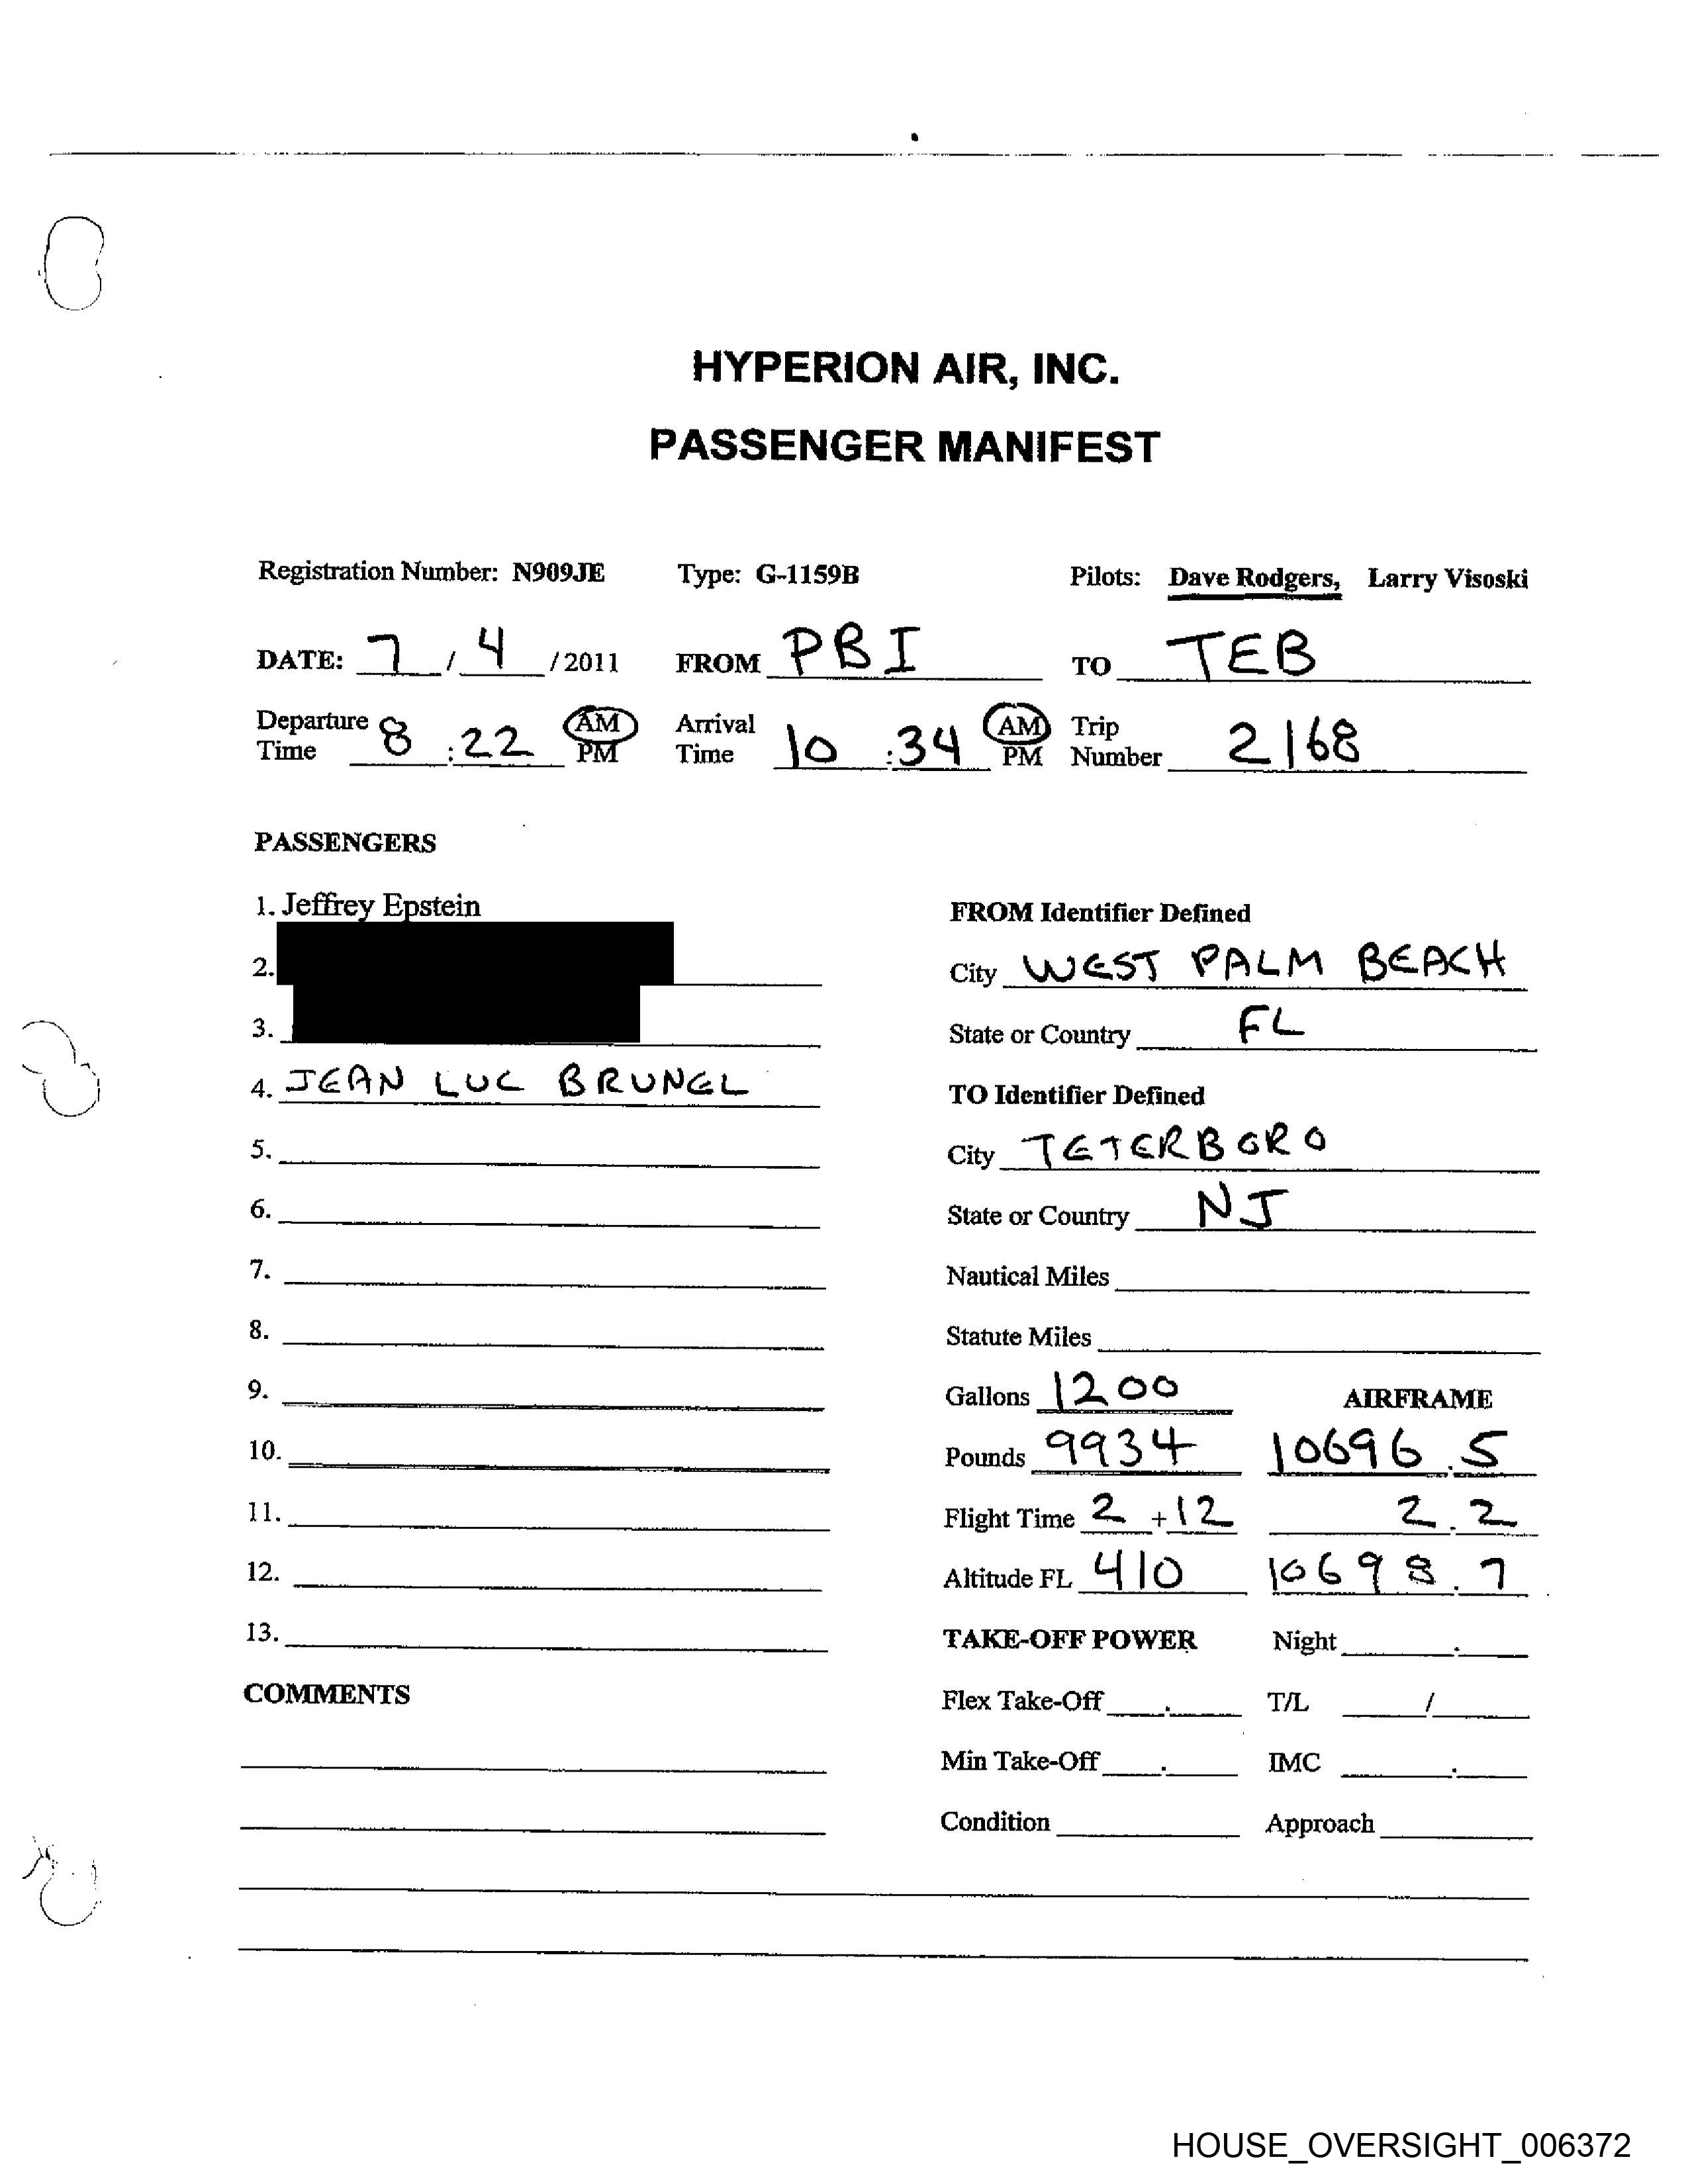 HYPERION AIR, INC.
PASSENGER MANIFEST
Registration Number: N909JE Type: G-1159B Pilots: Dave Rodgers, Larry Visoski
DATE: 7 / 4 / 2011 FROM PBI TO TEB
Departure Time 8 : 22 AM PM Arrival Time 10 : 34 AM PM Trip Number 2168
PASSENGERS
1. Jeffrey Epstein
2.
3.
4. JEAN LUC BRUNEL
5.
6.
7.
8.
9.
10.
11.
12.
13.
COMMENTS
FROM Identifier Defined
City WEST PALM BEACH
State or Country FL
TO Identifier Defined
City TETERBORO
State or Country NJ
Nautical Miles
Statute Miles
Gallons 1200 AIRFRAME
Pounds 9934 10696.5
Flight Time 2 + 12 2.2
Altitude FL 410 10698.7
TAKE-OFF POWER Night .
Flex Take-Off . T/L /
Min Take-Off . IMC .
Condition Approach
HOUSE_OVERSIGHT_006372